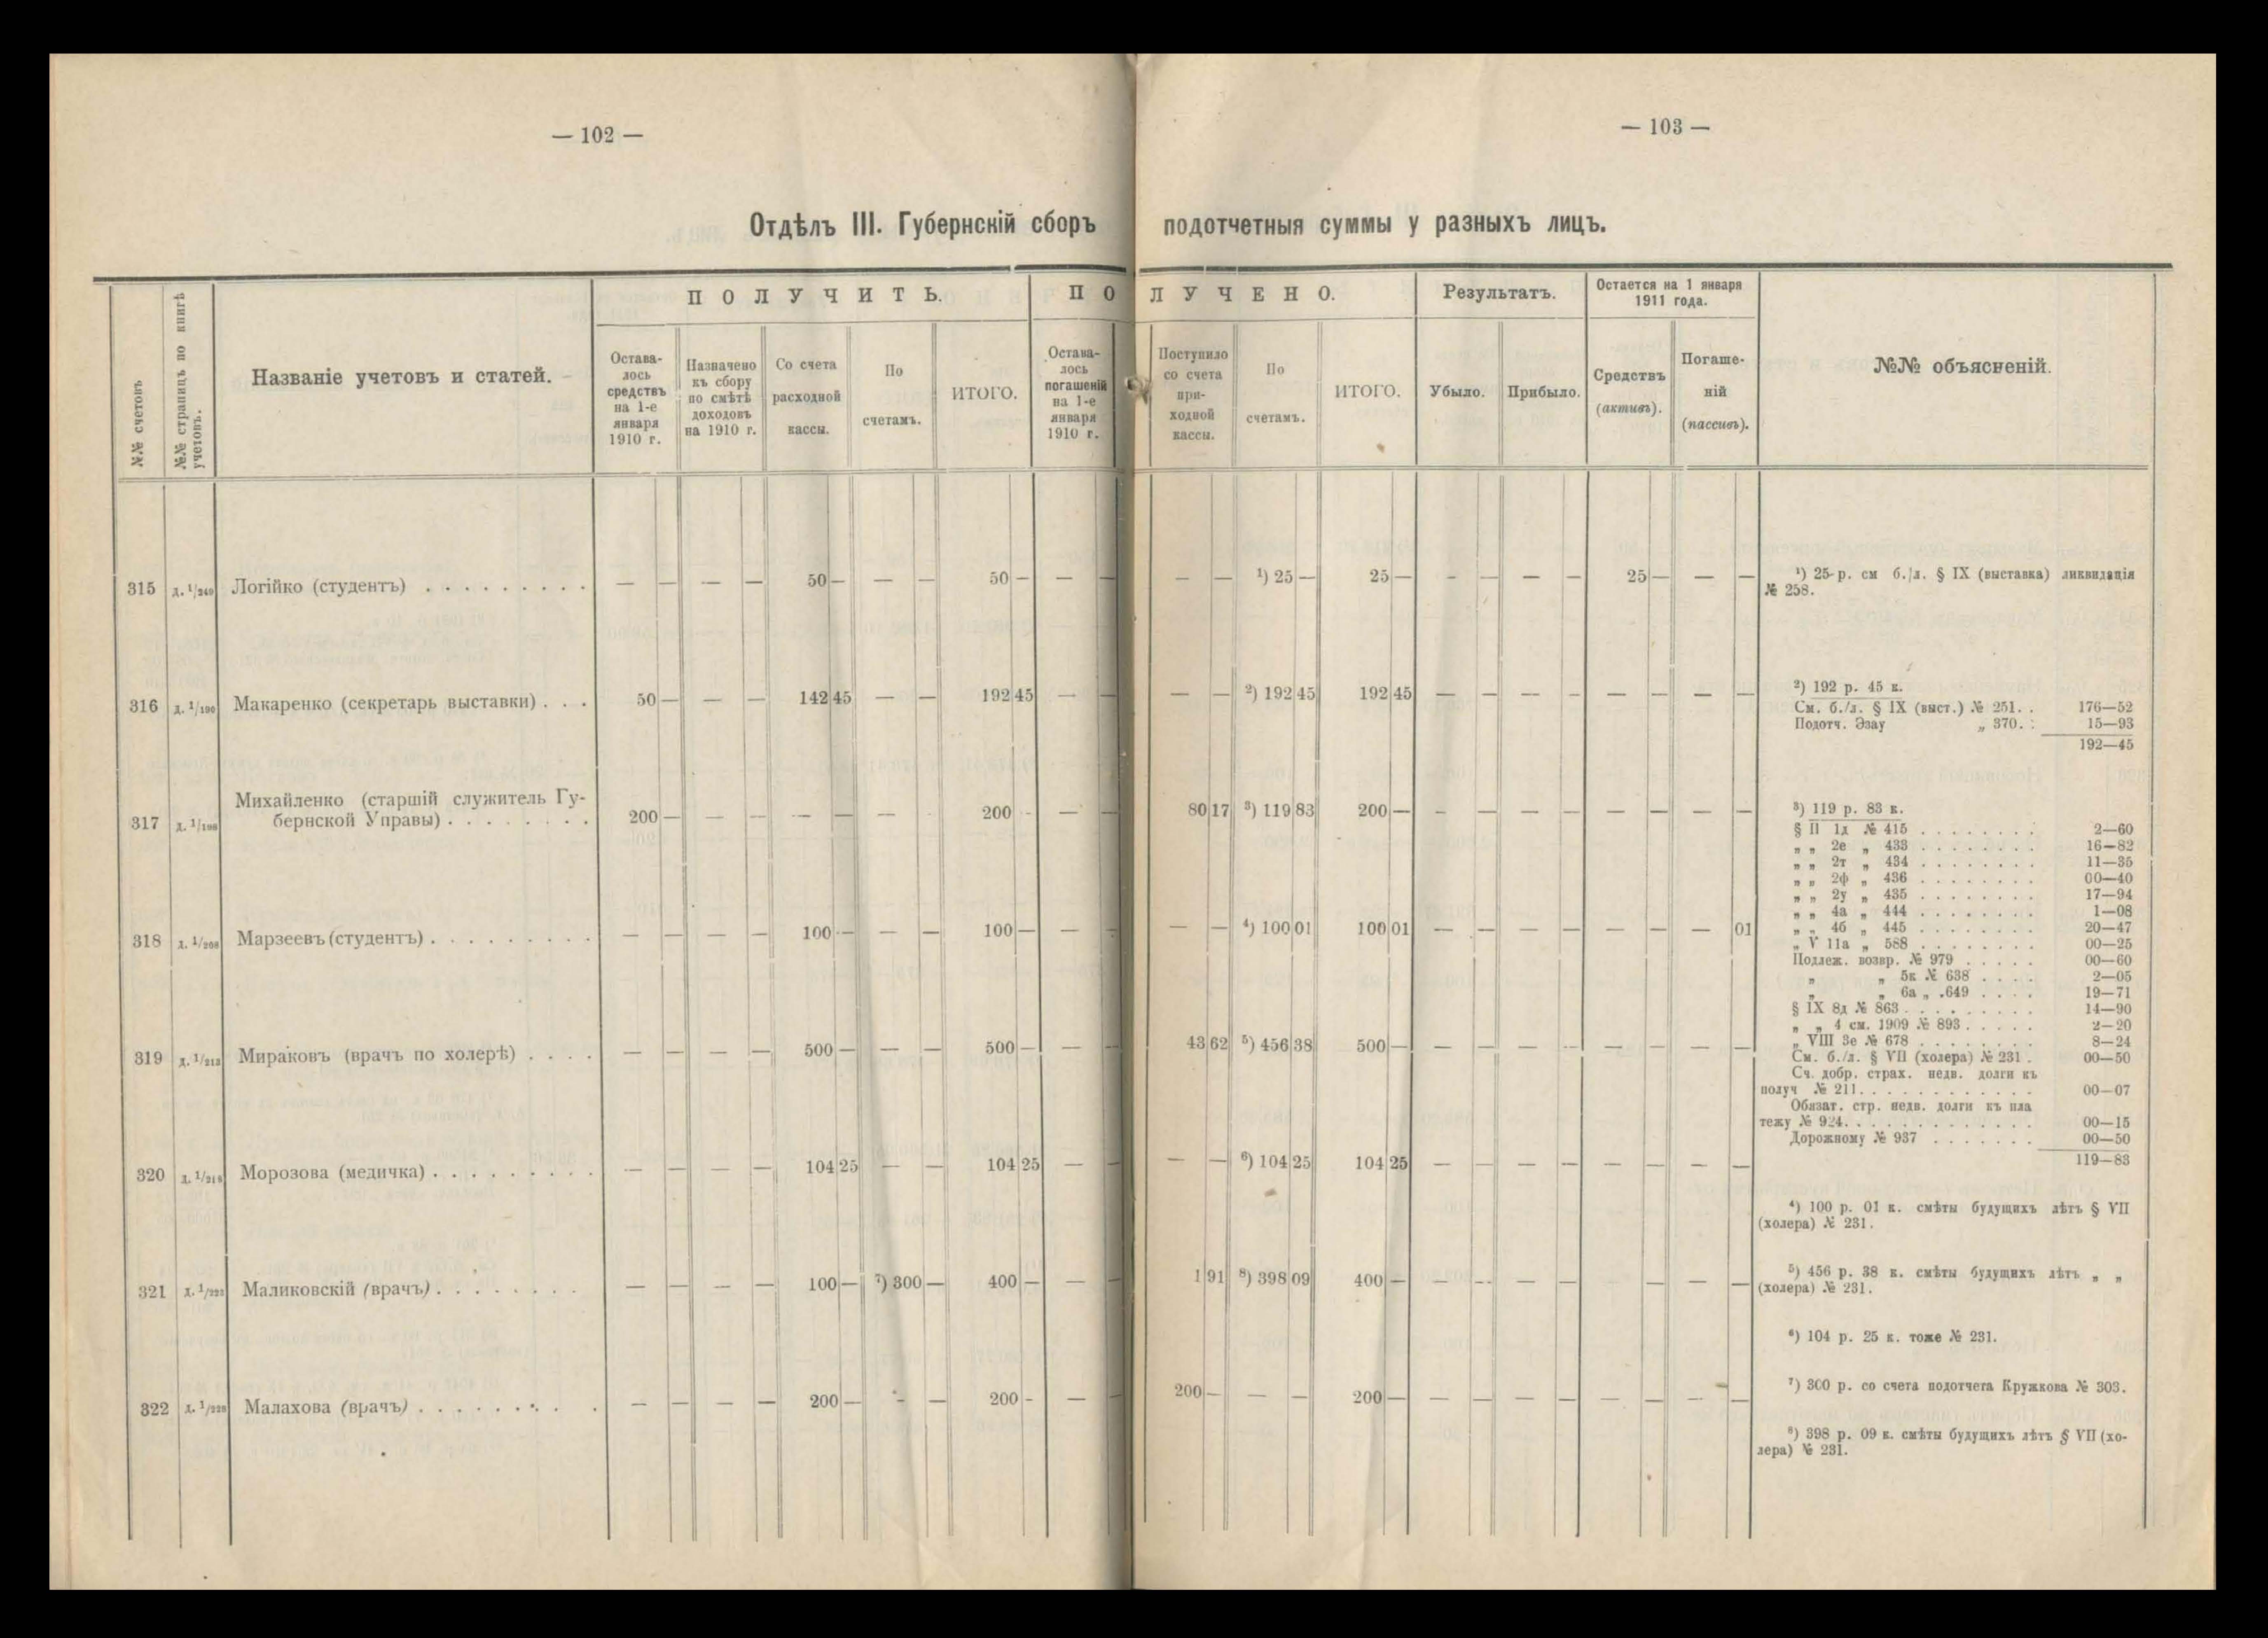 — 102 —
— 103 —
Отдѣлъ III. Губернскій сборъ подотчетныя суммы у разныхъ лицъ.
№№ счетовъ
№№ страницъ по книгѣ учетовъ.
Названіе учетовъ и статей.
ПОЛУЧИТЬ.
Остава-
лось
средствъ
на 1-е
января
1910 г.
Назначено
къ сбору
по смѣтѣ
доходовъ
на 1910 г.
Со счета
расходной
кассы.
По
счетамъ.
ИТОГО.
ПОЛУЧЕНО.
Остава-
лось
погашеній
на 1-е
января
1910 г.
Поступило
со счета
при-
ходной
кассы.
По
счетамъ.
ИТОГО.
Результатъ.
Убыло.
Прибыло.
Остается на 1 января
1911 года.
Средствъ
(активъ).
Погаше-
ній
(пассивъ).
№№ объясненій.
315 д. 1/249 Логійко (студентъ) . . . . . . . . . — — — — 50 — — — 50 — — — — — ¹) 25 — 25 — - — — — 25 — — —
316 д. 1/190 Макаренко (секретарь выставки) . . . 50 — — — 142 45 — — 192 45 — — — — ²) 192 45 192 45 — — — — — — — —
317 д. 1/198 Михайленко (старшій служитель Гу-
бернской Управы) . . . . . . . . 200 — — — — — — — 200 - — — 80 17 ³) 119 83 200 — — — — — — — — —
318 д. 1/208 Марзеевъ (студентъ) . . . . . . . . . — — — — 100 — — — 100 — — - — — ⁴) 100 01 100 01 — — — — — — — 01
319 д. 1/213 Мираковъ (врачъ по холерѣ) . . . . — — — — 500 — — — 500 — — — 43 62 ⁵) 456 38 500 — — — — — — — — —
320 д. 1/218 Морозова (медичка) . . . . . . . . . — — — — 104 25 — — 104 25 — — — — ⁶) 104 25 104 25 — — — — — — — —
321 д. 1/223 Маликовскій (врачъ) . . . . . . . . — — — — 100 — ⁷) 300 — 400 — — — 1 91 ⁸) 398 09 400 — — -- — — — — —
322 д. 1/228 Малахова (врачъ) . . . . . . . . . — — — — 200 — - — 200 - — — 200 — — — 200 — — — — — — — — —
¹) 25 р. см б./л. § IX (выставка) ликвидація
№ 258.
²) 192 р. 45 к.
См. б./л. § IX (выст.) № 251. . 176—52
Подотч. Эзау „ 370. . 15—93
192—45
³) 119 р. 83 к.
§ II 1д № 415 . . . . . . . . 2—60
„ „ 2е „ 433 . . . . . . . . 16—82
„ „ 2т „ 434 . . . . . . . . 11—35
„ „ 2ф „ 436 . . . . . . . . 00—40
„ „ 2у „ 435 . . . . . . . . 17—94
„ „ 4а „ 444 . . . . . . . . 1—08
„ „ 4б „ 445 . . . . . . . . 20—47
„ V 11а „ 588 . . . . . . . . 00—25
Подлеж. возвр. № 979 . . . . . 00—60
„ „ 5к № 638 . . . . 2—05
„ „ 6а „ .649 . . . . 19—71
§ IX 8д № 863 . . . . . . . . . 14—90
„ „ 4 см. 1909 № 893 . . . . . 2—20
„ VIII 3е № 678 . . . . . . . . 8—24
См. б./л. § VII (холера) № 231 . 00—50
Сч. добр. страх. недв. долги къ
получ № 211. . . . . . . . . . . . 00—07
Обязат. стр. недв. долги къ пла
тежу № 924. . . . . . . . . . . . . 00—15
Дорожному № 937 . . . . . . . 00—50
119—83
⁴) 100 р. 01 к. смѣты будущихъ лѣтъ § VII
(холера) № 231.
⁵) 456 р. 38 к. смѣты будущихъ лѣтъ „ „
(холера) № 231.
⁶) 104 р. 25 к. тоже № 231.
⁷) 300 р. со счета подотчега Кружкова № 303.
⁸) 398 р. 09 к. смѣты будущихъ лѣтъ § VII (хо-
лера) № 231.